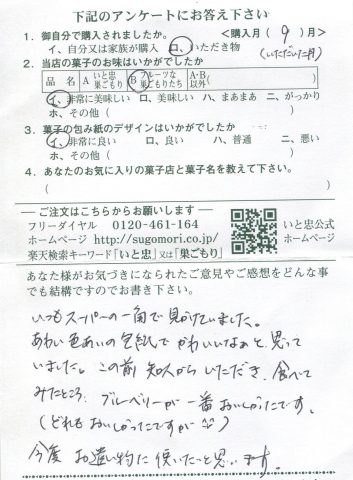 下記のアンケートにお答え下さい
1. 御自分で購入されましたか。 <購入月( 9 )月>
イ、自分又は家族が購入 ロ、いただき物 (いただいた月)
2. 当店の菓子のお味はいかがでしたか
品 名 A いと忠巣ごもり B フルーツな巣ごもりたち A・B以外( )
イ、非常に美味しい ロ、美味しい ハ、まあまあ ニ、がっかり
ホ、その他( )
3. 菓子の包み紙のデザインはいかがでしたか
イ、非常に良い ロ、良い ハ、普通 ニ、悪い
ホ、その他( )
4. あなたのお気に入りの菓子店と菓子名を教えて下さい。
( )
ご注文はこちらからお願いします
フリーダイヤル 0120-461-164
ホームページ http://sugomori.co.jp/
楽天検索キーワード『いと忠』又は『巣ごもり』
いと忠公式
ホームページ
あなた様がお気づきになられたご意見やご感想をどんな事
でも結構ですのでお書き下さい。
いつもスーパーの一角で見かけていました。
あわい色あいの包紙でかわいいなぁと思って
いました。この前知人からいただき、食べて
みたところ、ブルーベリーが一番おいしかったです。
(どれもおいしかったですが)
今度お遣い物に使いたいと思います。